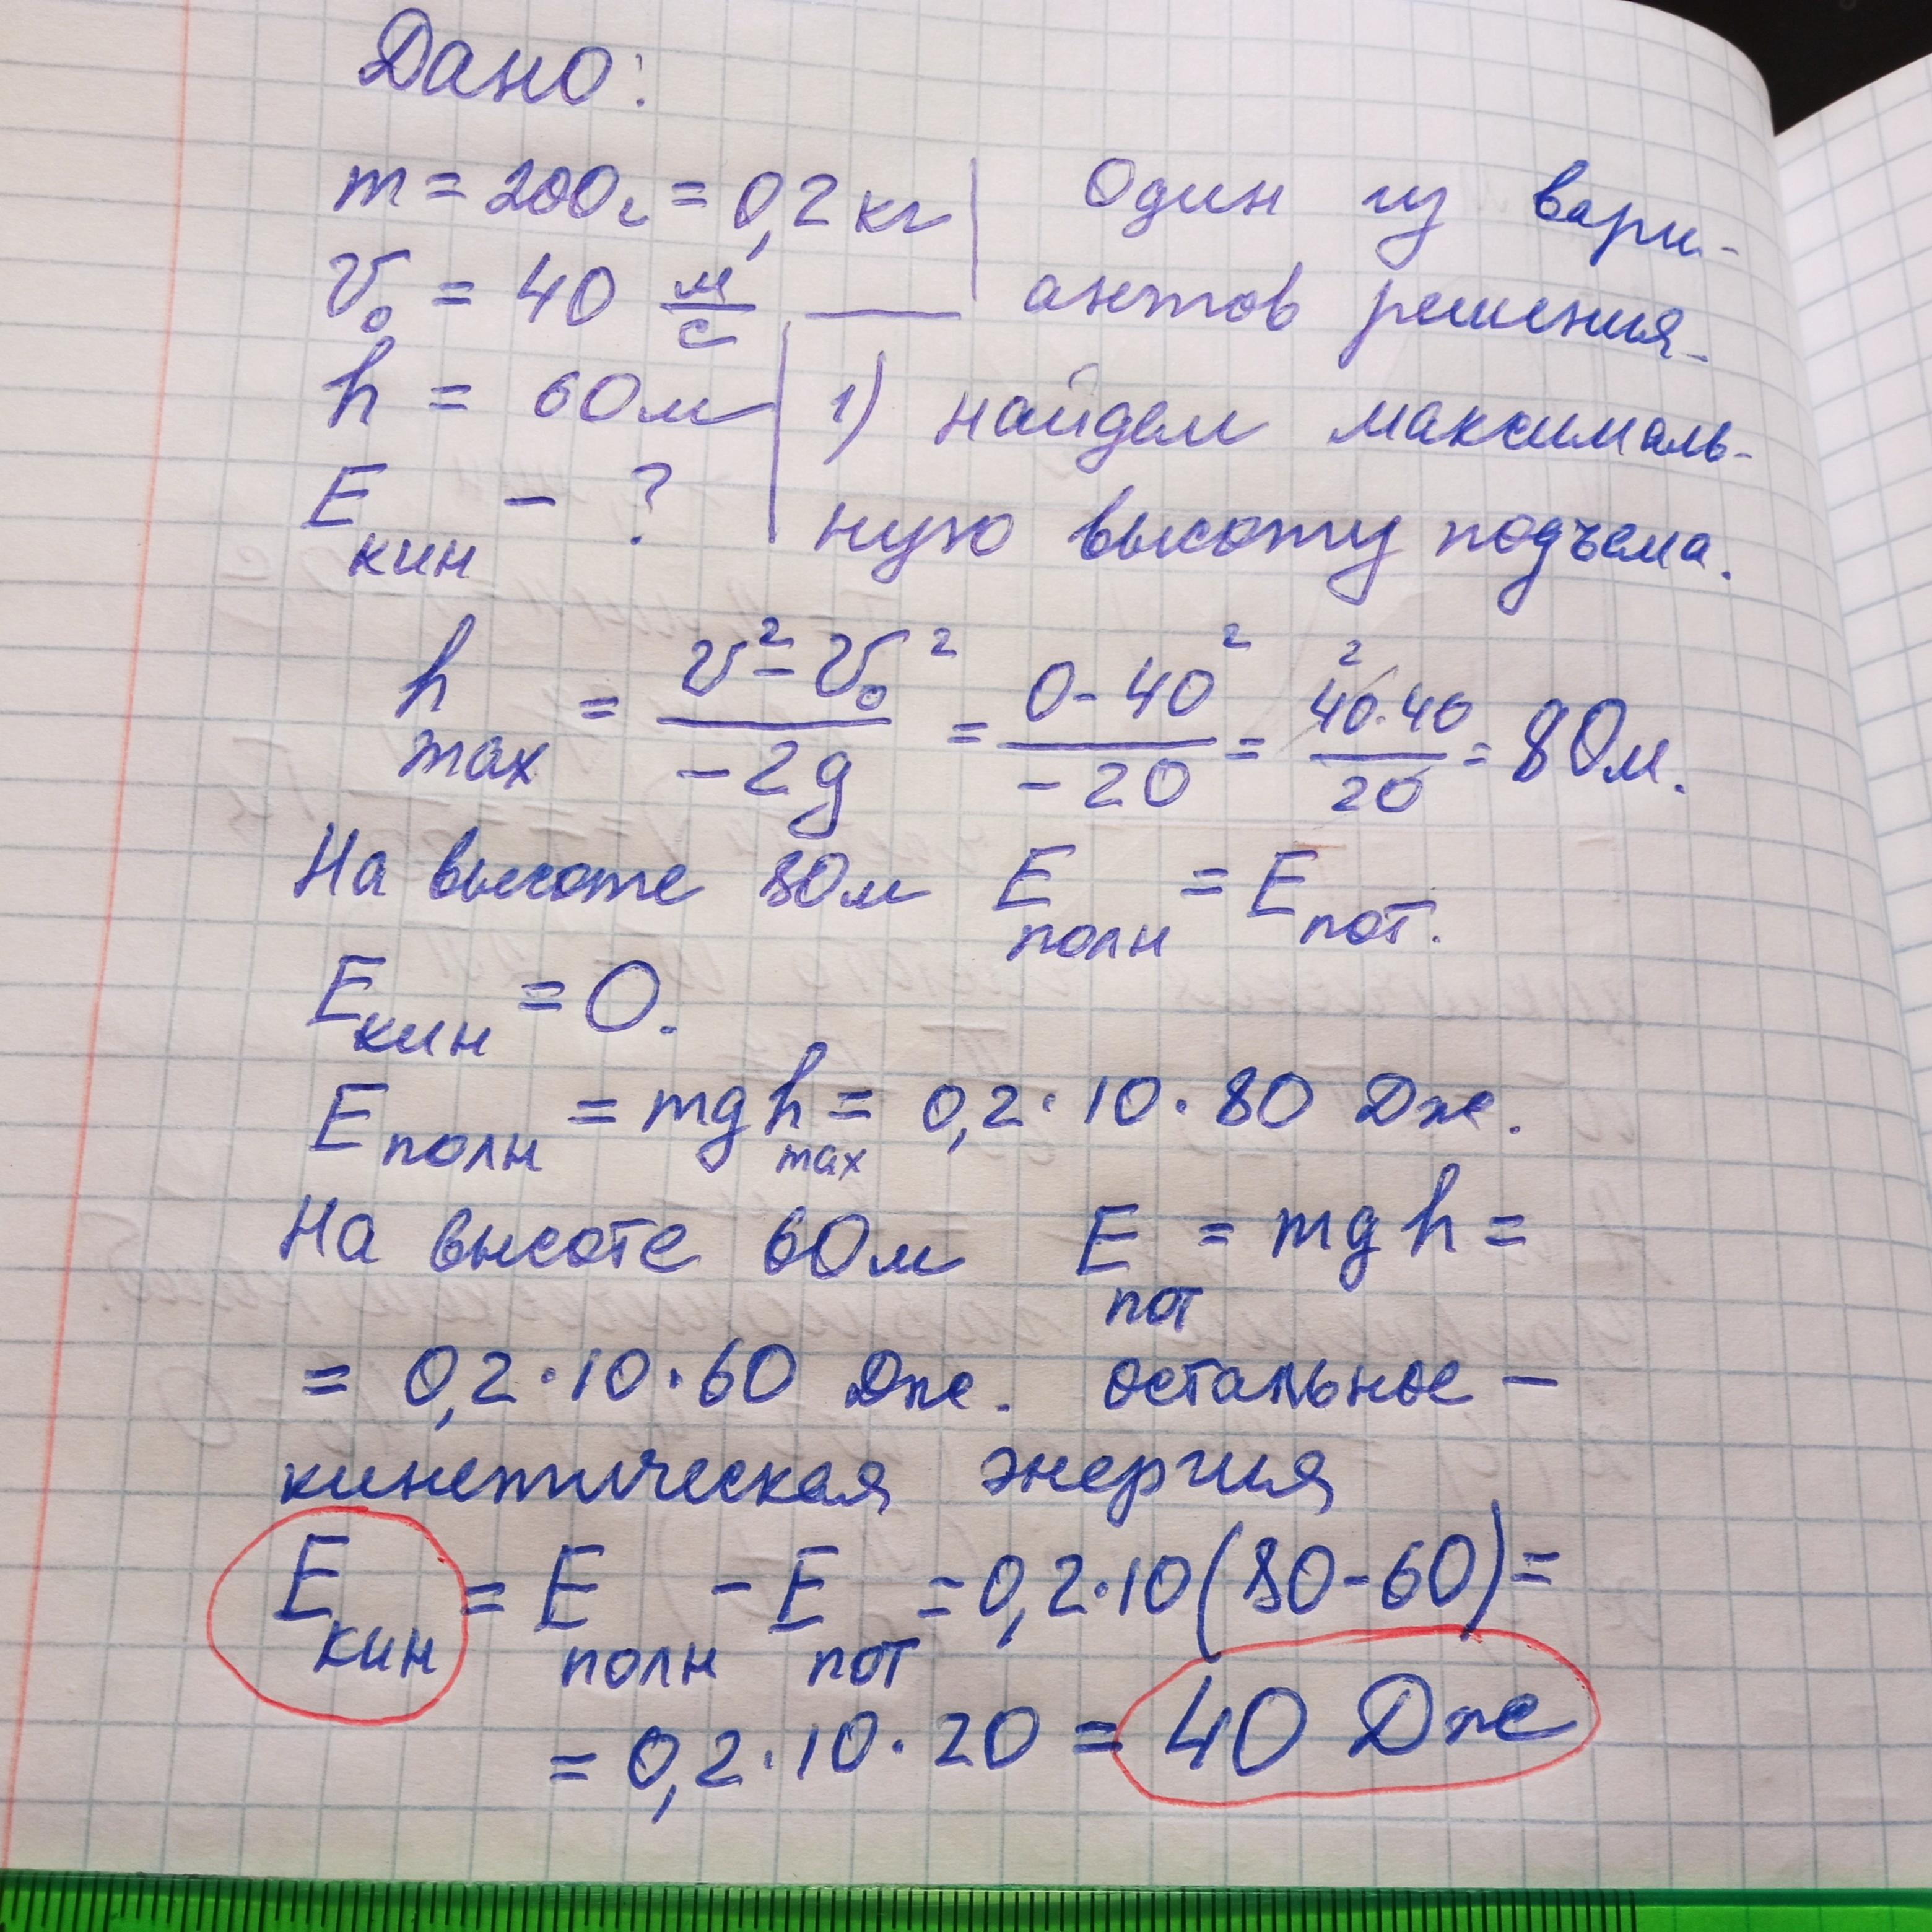 Дано:
m = 200г = 0,2 кг | Один из вари-
v₀ = 40 м/с антов решения.
h = 60м | 1) найдем максималь-
Eкин - ? ную высоту подъема.
hmax = (v² - v₀²)/(-2g) = (0 - 40²)/(-20) = (40·40)/20 = 80м.
На высоте 80м Eполн = Eпот.
Eкин = 0.
Eполн = mghmax = 0,2·10·80 Дж.
На высоте 60м Eпот = mgh =
= 0,2·10·60 Дж. остальное –
кинетическая энергия
Eкин = Eполн - Eпот = 0,2·10(80-60) =
= 0,2·10·20 = 40 Дж